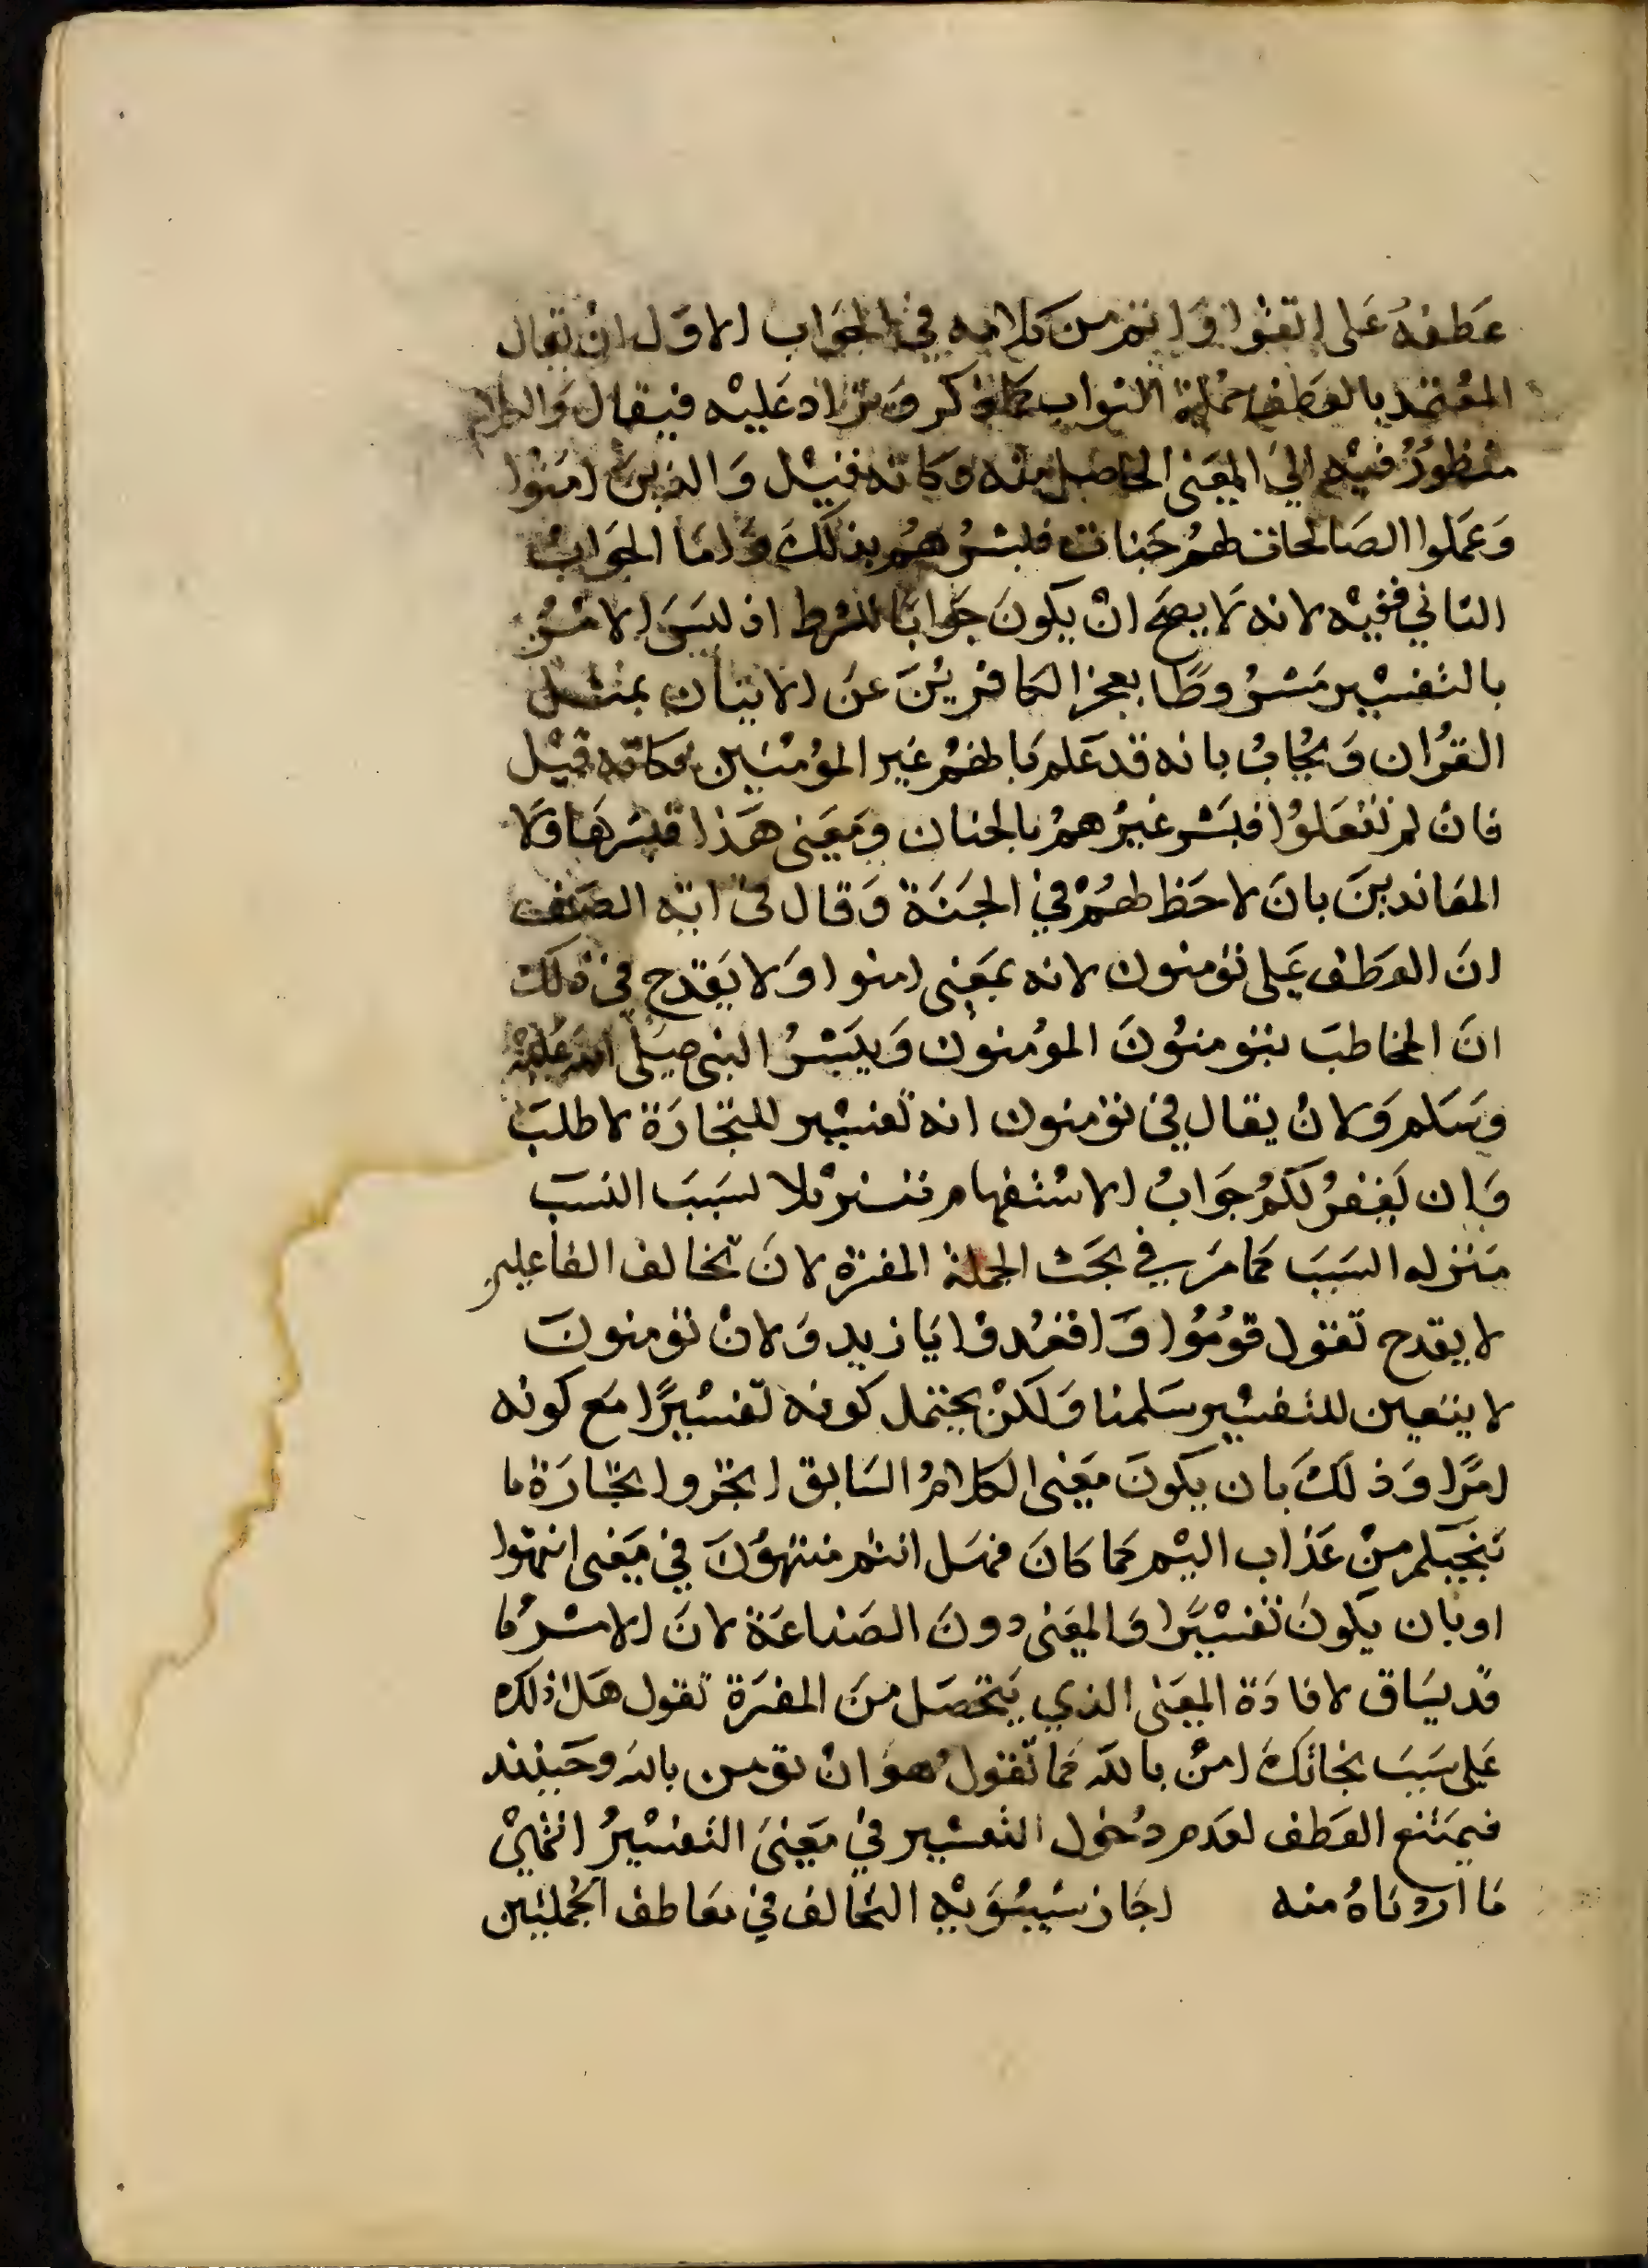 عطفه على اتقوا واتم من كلامه في الجواب الاول ان يقال
المعتمد بالعطف جملة الثواب كما ذكر ويزاد عليه فيقال والكلام
منظور فيه الي المعنى الحاصل منه وكانه قيل والذين امنوا
وعملوا الصالحات لهم جنات فبشرهم بذلك واما الجواب
الثاني ففيه لانه لا يصح ان يكون جوابا للشرط اذ ليس الامر
بالتفسير مشروطا بعجز الكافرين عن الاتيان بمثل
القران ويجاب بانه قد علم بانهم غير المؤمنين فكانه قيل
فان لم تفعلوا فبشر غيرهم بالجنان ومعنى هذا فبشر هاولا
المعاندين بان لا حظ لهم في الجنة وقال في اية الصف
ان العطف على تؤمنون لانه بمعنى امنوا ولا يقدح في ذلك
ان المخاطب بتؤمنون المؤمنون ويبشر النبى صلى الله عليه
وسلم ولان يقال في تؤمنون انه تفسير للتجارة لا طلب
وان يغفر لكم جواب الاستفهام تنزيلا لسبب السبب
منزله السبب كما مر في بحث الجملة المفسرة لان تخالف الفاعلين
لا يقدح تقول قوموا واقعدوا يا زيد ولان تؤمنون
لا يتعين للتفسير سلمنا ولكن يحتمل كونه تفسيرا مع كونه
امرا وذلك بان يكون معنى الكلام السابق اتجروا تجارة ما
تنجيكم من عذاب اليم كما كان فهل انتم منتهون في معنى انتهوا
او بان يكون تفسيرا والمعنى دون الصناعة لان الامر ما
قد يساق لافادة المعنى الذي يتحصل من المفسرة تقول هل ادلك
على سبب نجاتك امن بالله كما تقول هو ان تؤمن بالله وحينئذ
فيمتنع العطف لعدم دخول التبشير في معنى التفسير انتهى
ما اردناه منه اجاز سيبويه التخالف في تعاطف الجملتين